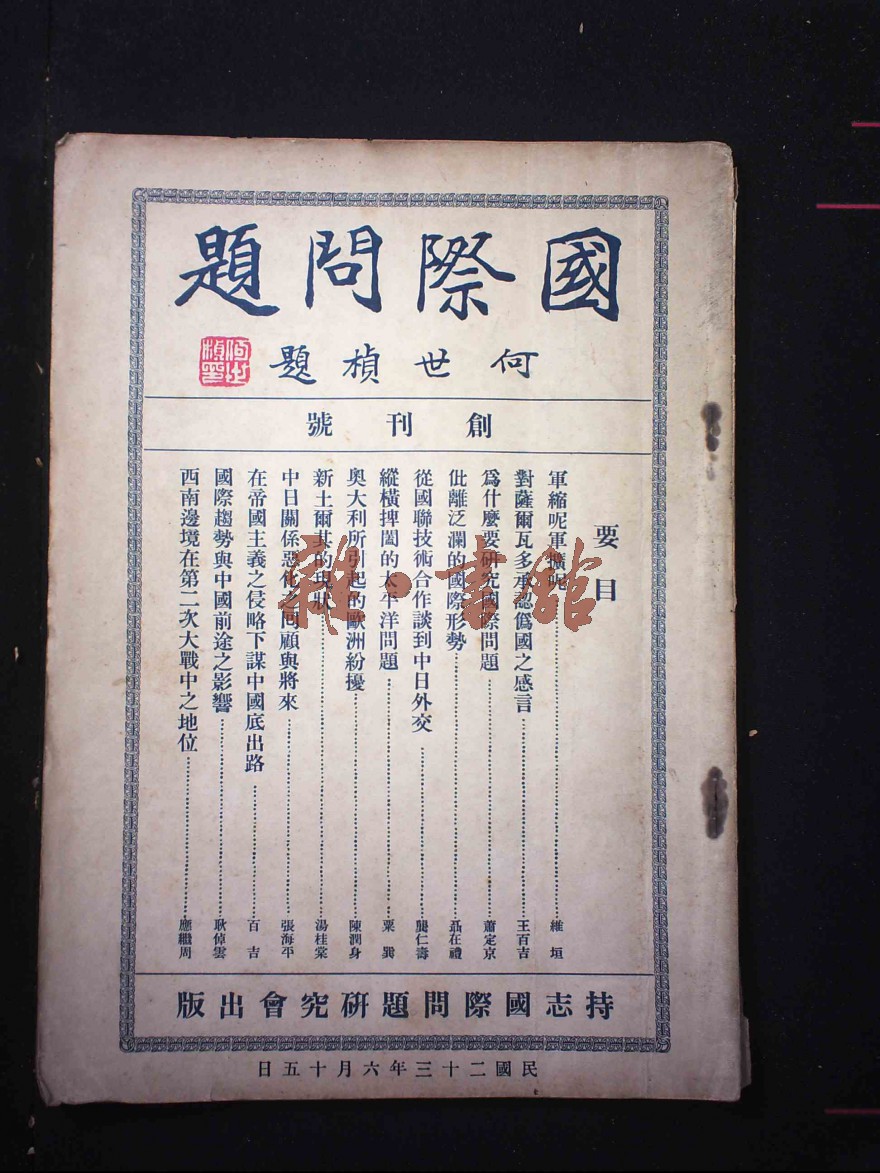 國際問題
何世楨題
何世楨印
創刊號
要目
軍縮呢軍擴呢……維垣
對薩爾瓦多承認僞國之感言……王百吉
爲什麼要研究國際問題……蕭定京
仳離泛瀾的國際形勢……聶在禮
從國聯技術合作談到中日外交……龔仁壽
縱橫捭闔的太平洋問題……粟巽
奧大利所引起的歐洲紛擾……陳潤身
新土耳其的現狀……湯桂棠
中日關係惡化之回顧與將來……張海平
在帝國主義之侵略下謀中國底出路……百吉
國際趨勢與中國前途之影響……耿倬雲
西南邊境在第二次大戰中之地位……應繼周
持志國際問題研究會出版
民國二十三年六月十五日
雜·書館